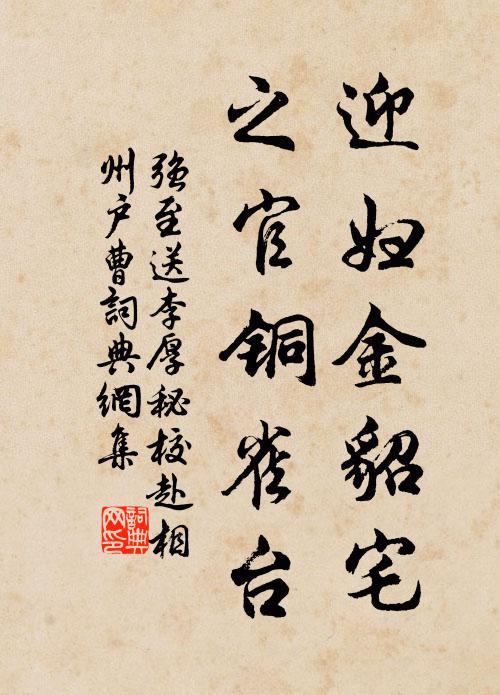 迎妇金貂宅
之官铜雀台
強至送李厚秘校赴相
州户曹詞典網集
詞典
网印